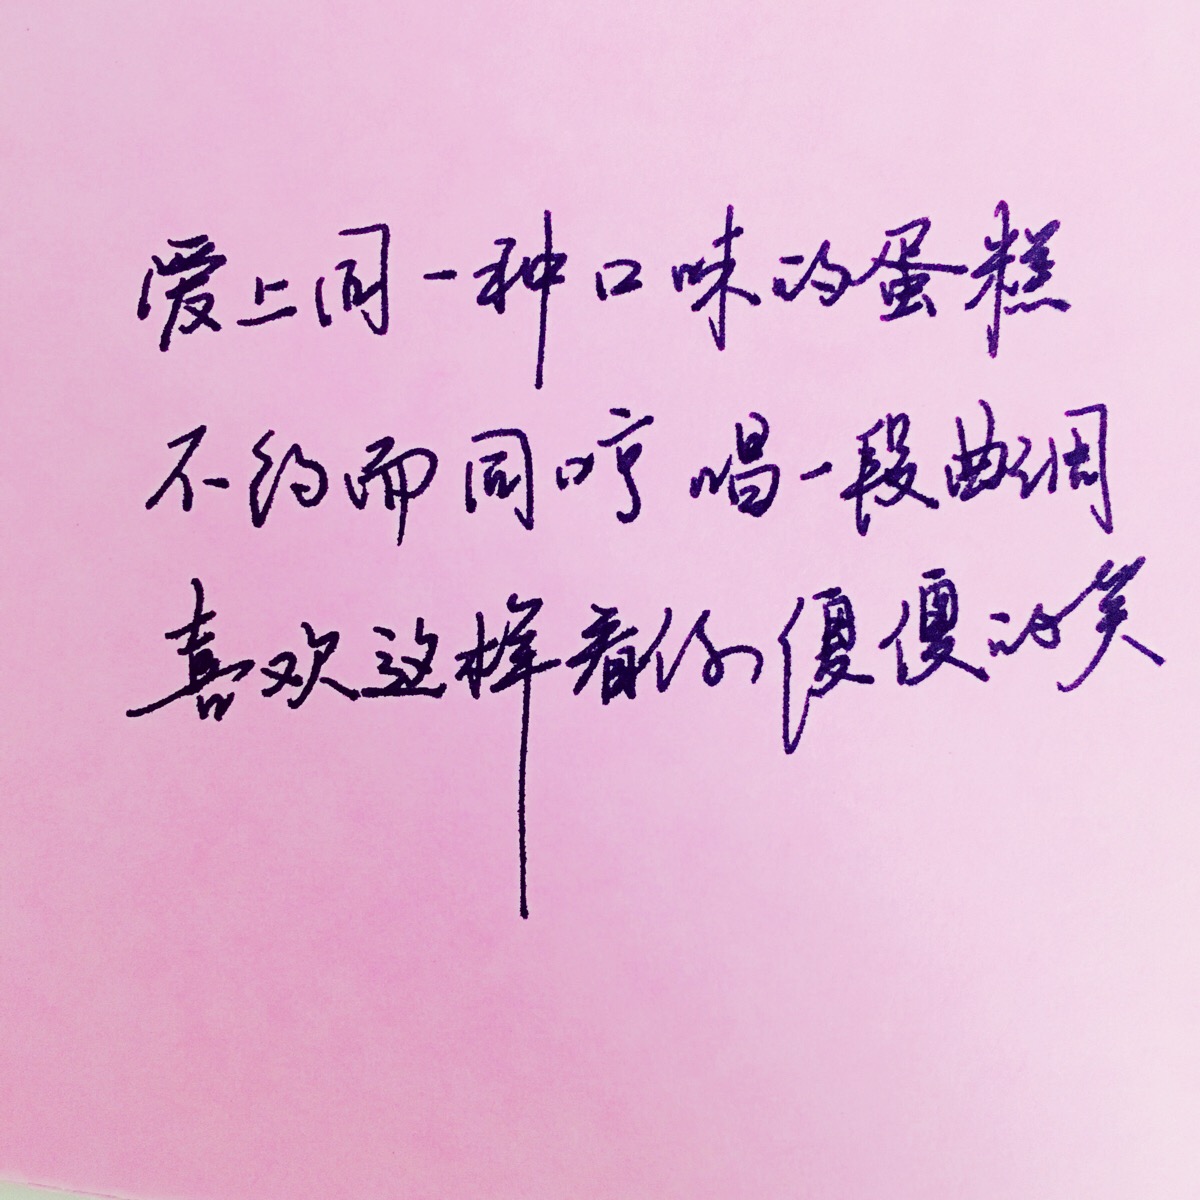 爱上同一种口味的蛋糕
不约而同哼唱一段曲调
喜欢这样看你傻傻的笑